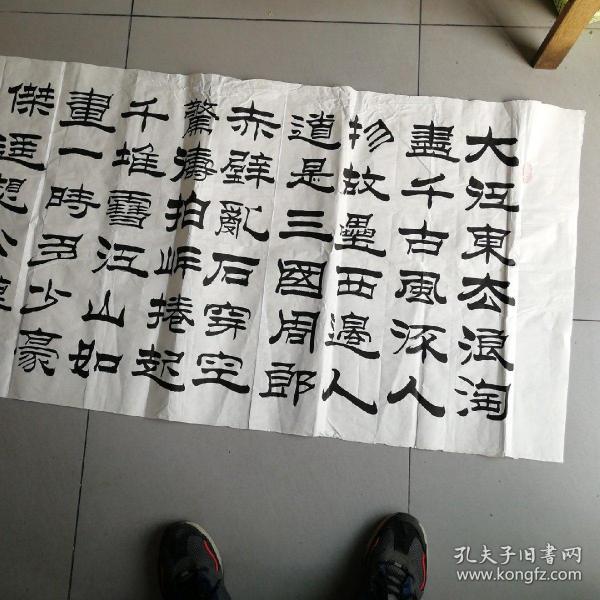 大江東去浪淘
盡千古風流人
物故壘西邊人
道是三國周郎
赤壁亂石穿空
驚濤拍岸捲起
千堆雪江山如
畫一時多少豪
傑遥想公
孔夫子旧书网
www.kongfz.com